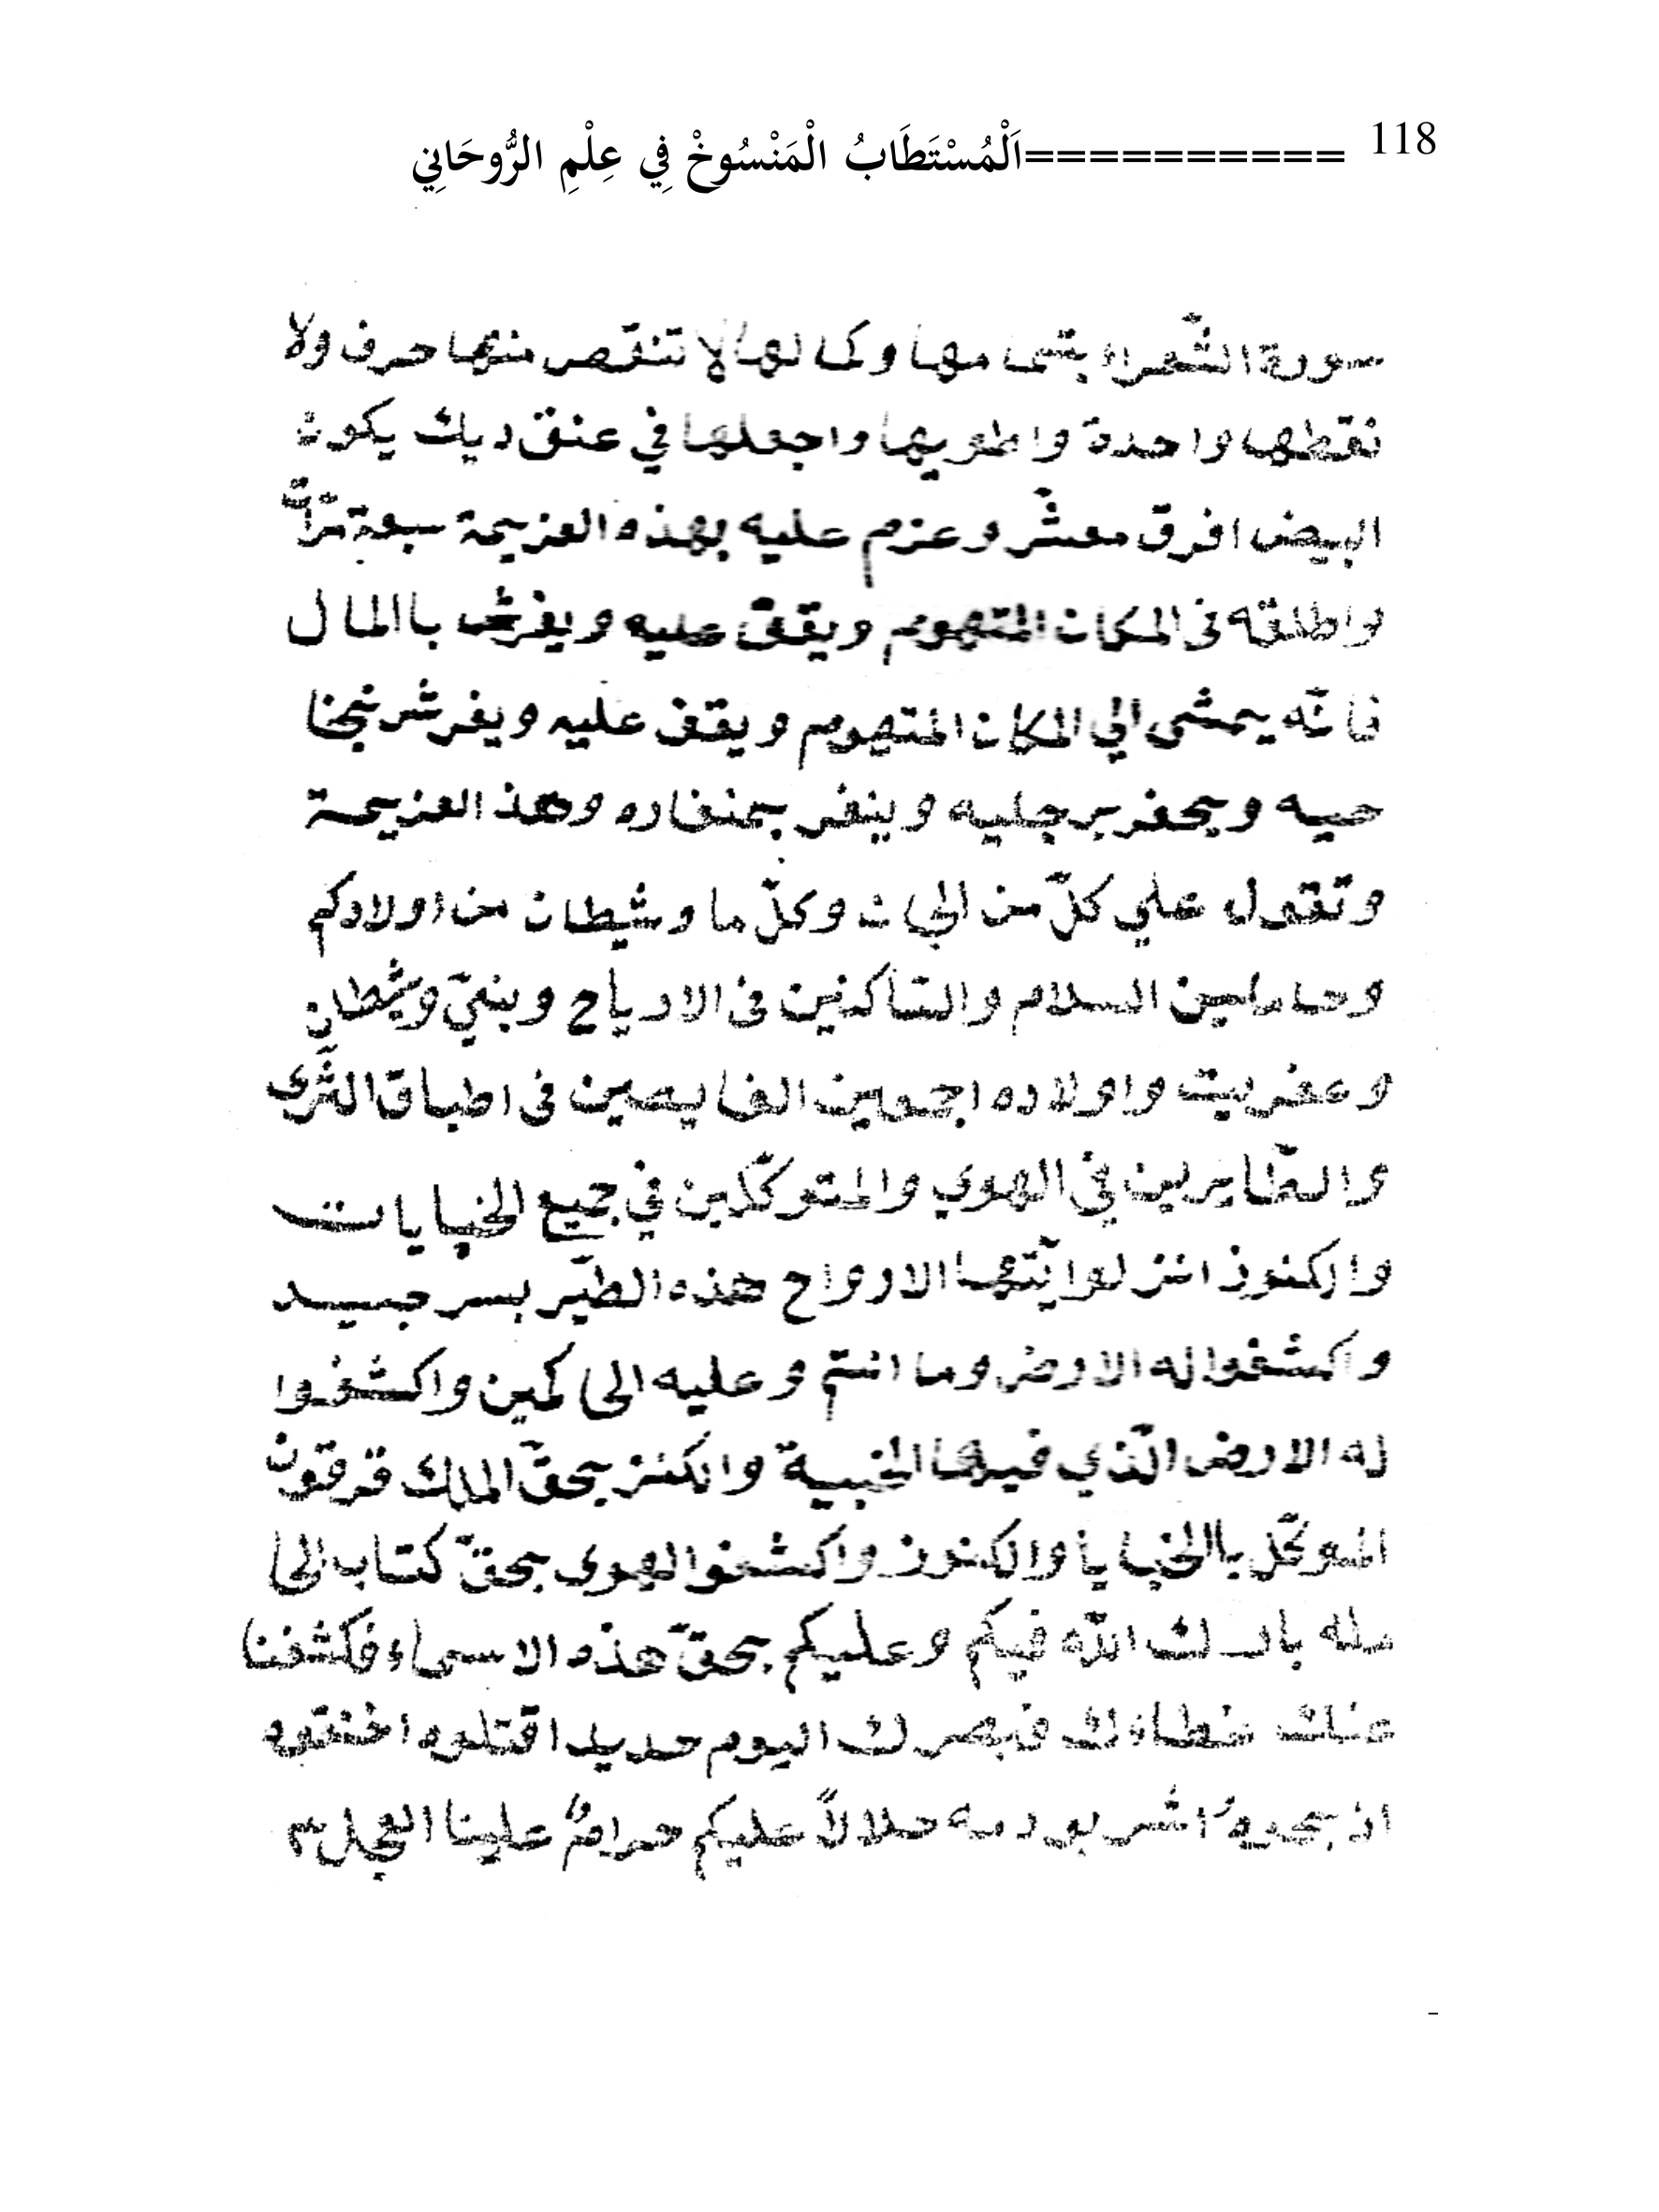 118 ==========اَلْمُسْتَطَابُ الْمَنْسُوخْ فِي عِلْمِ الرُّوحَانِي
سورة الشّعراء بتما مها وكما لها لا تنقّص منها حرف ولا
نقطها واحدة واطويها واجعلها في عنق ديك يكون
البيض افرق معشّر وعزم عليه بهذه العزيمة سبعة مّرّات
واطلقه فى المكان المتهوم ويقف عليه ويفرش باالمال
فانّه يمشى الي المكان المتهوم ويقف عليه ويفرش نجنا
حيه ويحفر برجليه وينفر بمنفاره وهذ العزيمة
وتقول علي كلّ من الجان وكلّ ما وشيطان من اولادكم
وحاملين السلام والسّاكنين فى الارياح وبنيّ وشيطان
وعفريت واولاده اجمعين الغايصين فى اطباق الثّرى
والطّايرين في الهوي والمتوكّلين في جميع الخبايات
والكنوز انزلوا ايّتها الارواح هذه الطيّر بسر جسيد
واكشفوا له الارض وما انتم وعليه الى كمين واكشفوا
له الارض الّذي فيها الخبية والكنز بحقّ الملك قرقون
الموكّل باالخبايا والكنوز واكشفوا الهوى بحقّ كتاب الى
مله بارك اللّه فيكم وعليكم بحقّ هذه الاسماء فكشفنا
عنك غطاءك فبصرك اليوم حديد اقتلوه اخنقوه
اذبحوهُ اشربو دمه حلالاً عليكم حرامٌ علينا العجل